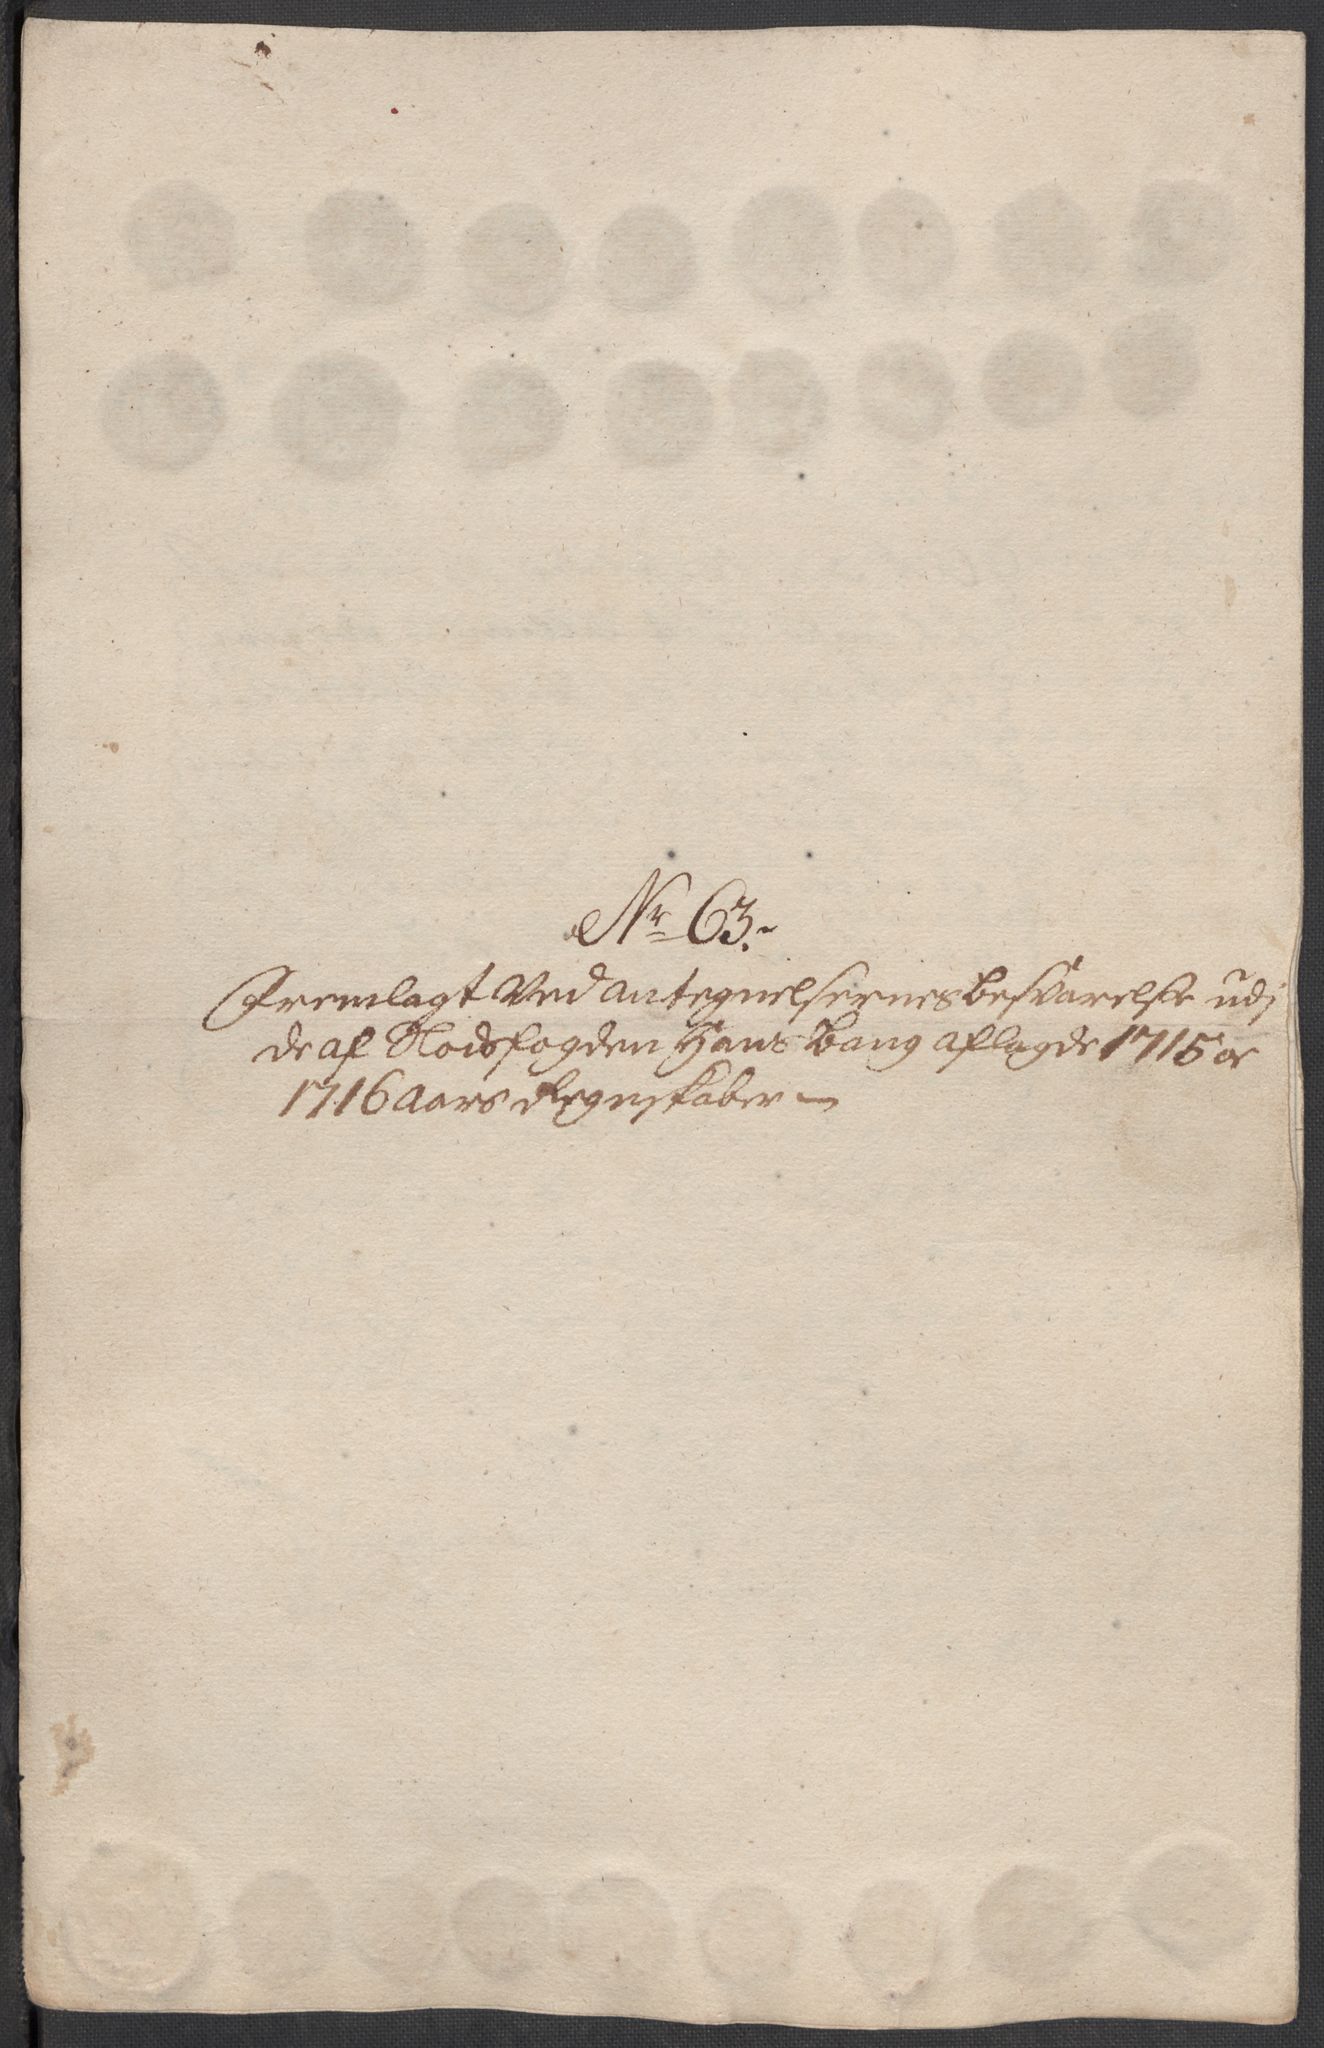 Nr 63.
Fremlagt Ved Antegnelsernes besvarelse udj
de af Fogden Hans Bang aflagde 1715 oc
1716 Aars Regnskaber